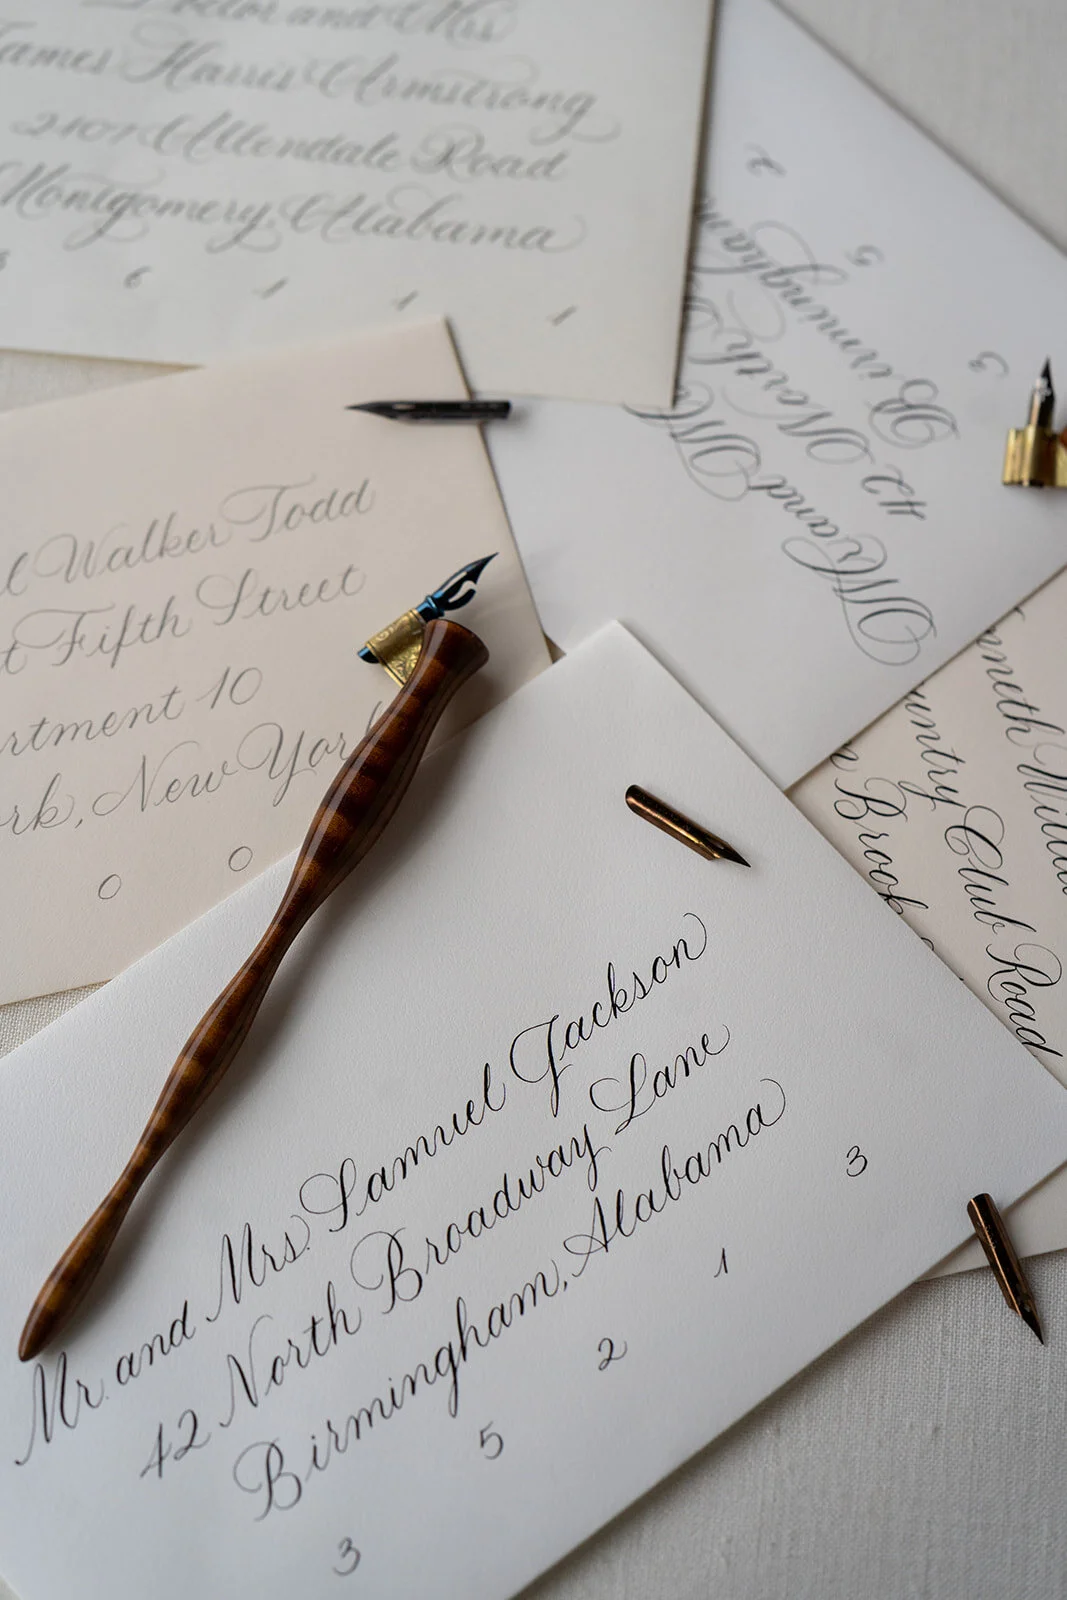 Doctor and Mrs
James Harris Armstrong
2107 Allendale Road
Montgomery, Alabama
6 1 1 1
Walker Todd
Fifth Street
10
New York
0 0
Mr. and
42 North
Birmingham
3 5 2
Country Club Road
Brook
Mr. and Mrs. Samuel Jackson
42 North Broadway Lane
Birmingham, Alabama
3 5 2 1 3